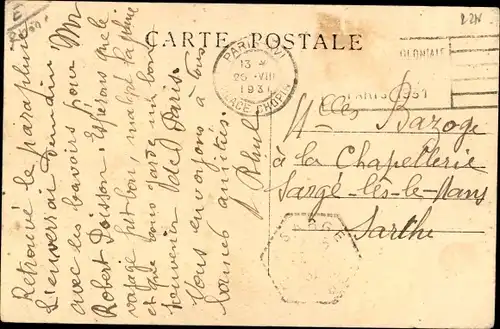 CARTE POSTALE
PARIS XVI
13 H
25 VIII
1931
PLACE CHOPIN
COLONIALE
PARIS 1931
Retrouvé le parapluie
L'enverrai demain
avec les bavoirs pour Mr
Robert Poisson. Espérons que le
voyage fut bon, malgré la pluie
et que vous gardez un bon
souvenir de Paris.
Vous envoyons à tous
bonnes amitiés.
Mlles Bazoge
à la Chapellerie
Sargé-lès-le-Mans
Sarthe
SARGE